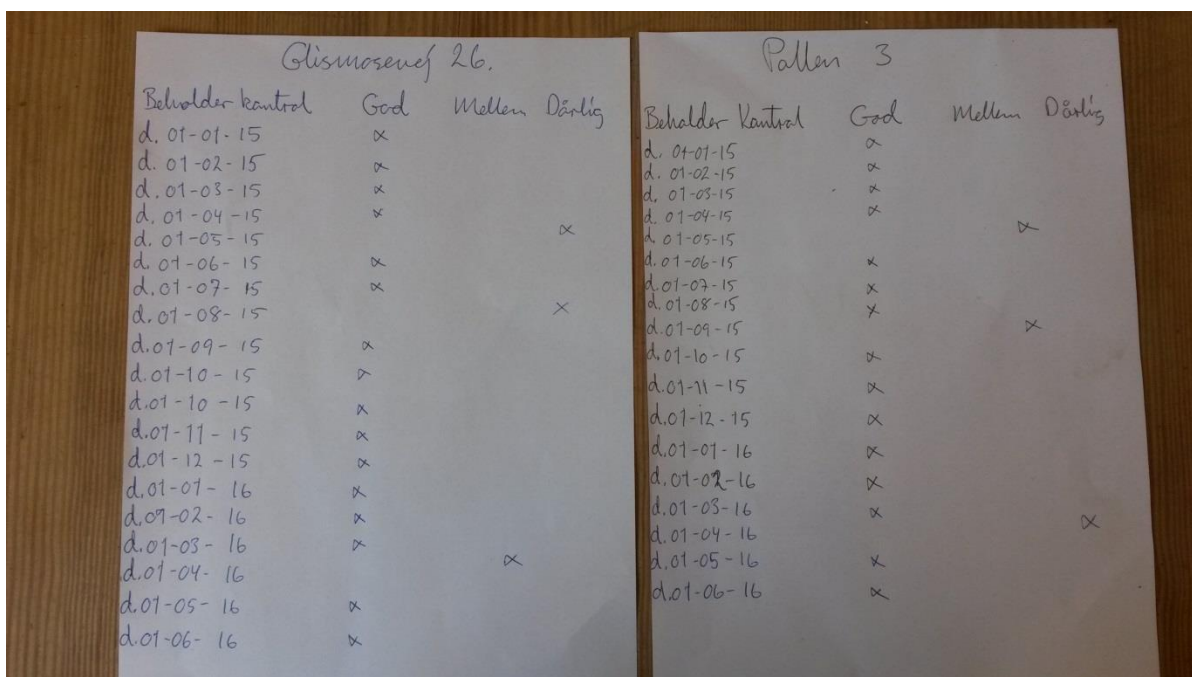 Glismosevej 26.
Beholder kontrol God Mellem Dårlig
d. 01-01-15 x
d. 01-02-15 x
d. 01-03-15 x
d. 01-04-15 x
d. 01-05-15 x
d. 01-06-15 x
d. 01-07-15 x
d. 01-08-15 x
d. 01-09-15 x
d. 01-10-15 x
d. 01-10-15 x
d. 01-11-15 x
d. 01-12-15 x
d. 01-01-16 x
d. 01-02-16 x
d. 01-03-16 x
d. 01-04-16 x
d. 01-05-16 x
d. 01-06-16 x
Pallen 3
Beholder Kontrol God Mellem Dårlig
d. 01-01-15 x
d. 01-02-15 x
d. 01-03-15 x
d. 01-04-15 x
d. 01-05-15 x
d. 01-06-15 x
d. 01-07-15 x
d. 01-08-15 x
d. 01-09-15 x
d. 01-10-15 x
d. 01-11-15 x
d. 01-12-15 x
d. 01-01-16 x
d. 01-02-16 x
d. 01-03-16 x
d. 01-04-16 x
d. 01-05-16 x
d. 01-06-16 x